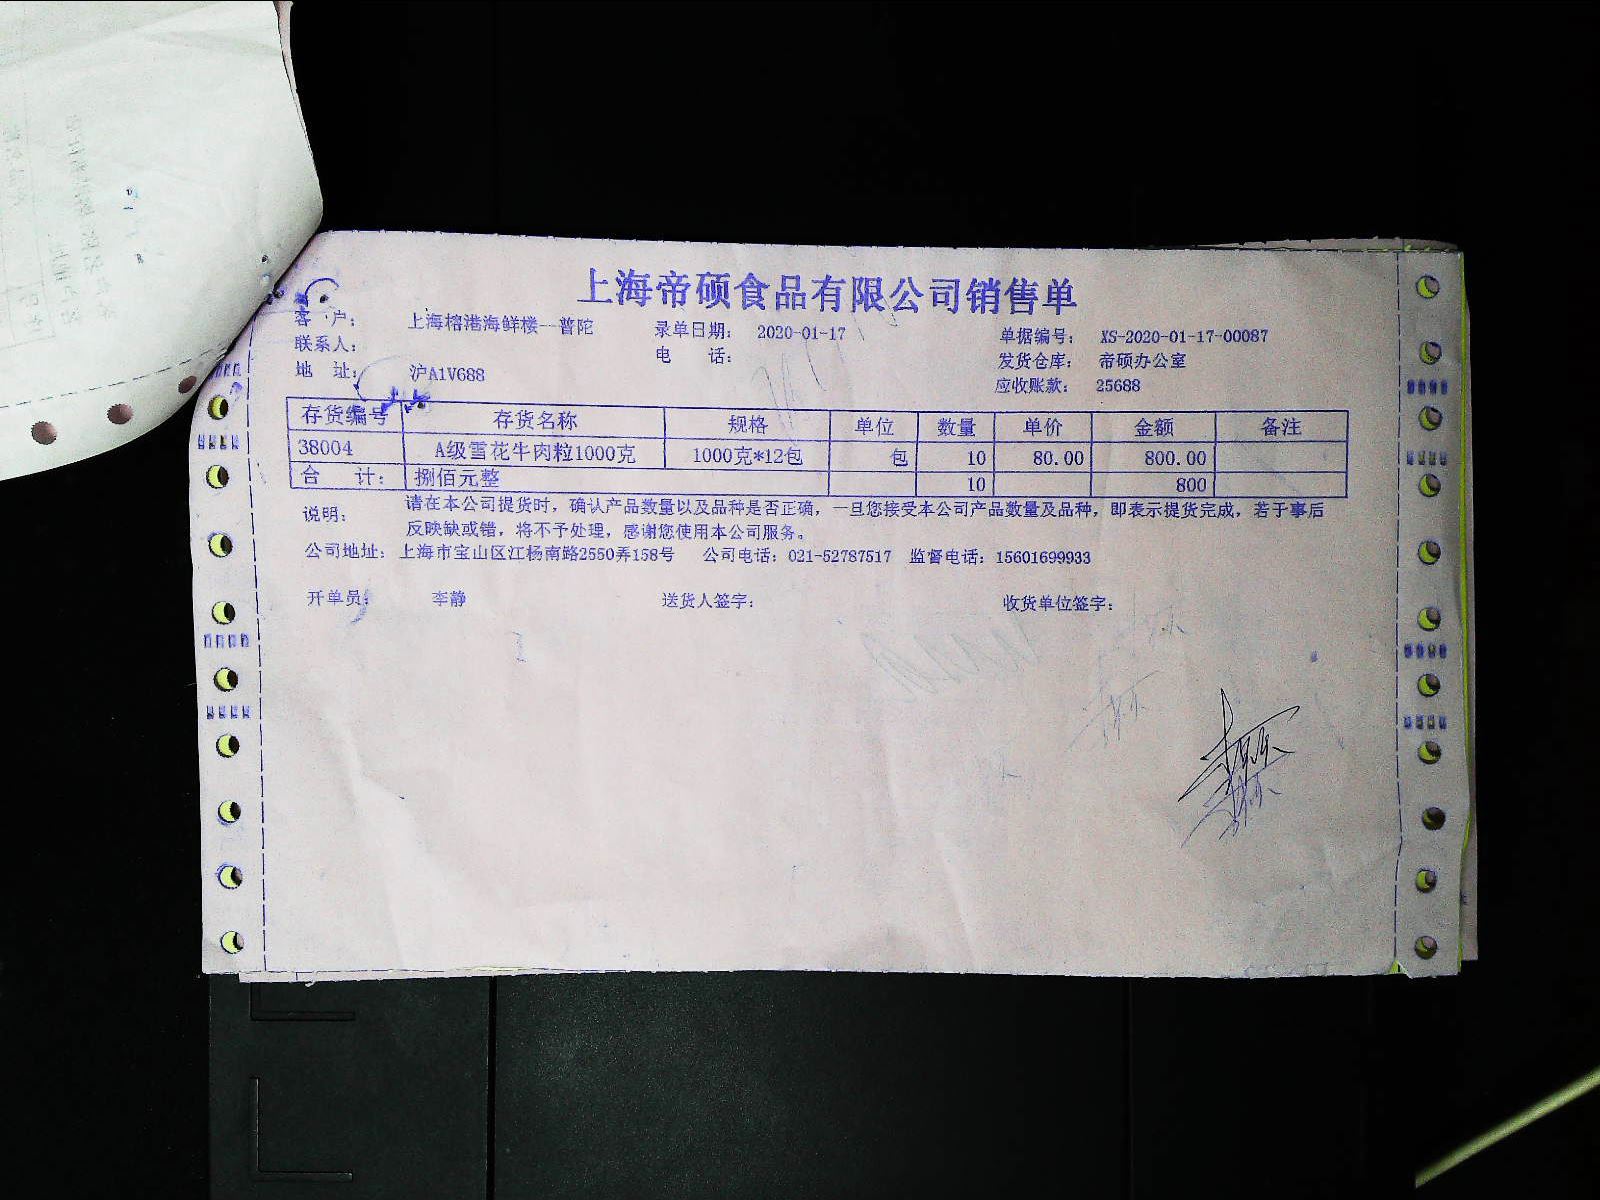 上海帝硕食品有限公司销售单
客 户： 上海榕港海鲜楼--普陀 录单日期： 2020-01-17 单据编号： XS-2020-01-17-00087
联系人： 电 话： 发货仓库： 帝硕办公室
地 址： 沪A1V688 应收账款： 25688
存货编号 存货名称 规格 单位 数量 单价 金额 备注
38004 A级雪花牛肉粒1000克 1000克*12包 包 10 80.00 800.00
合 计： 捌佰元整 10 800
说明： 请在本公司提货时，确认产品数量以及品种是否正确，一旦您接受本公司产品数量及品种，即表示提货完成，若于事后
反映缺或错，将不予处理，感谢您使用本公司服务。
公司地址： 上海市宝山区江杨南路2550弄158号 公司电话：021-52787517 监督电话：15601699933
开单员： 李静 送货人签字： 收货单位签字：